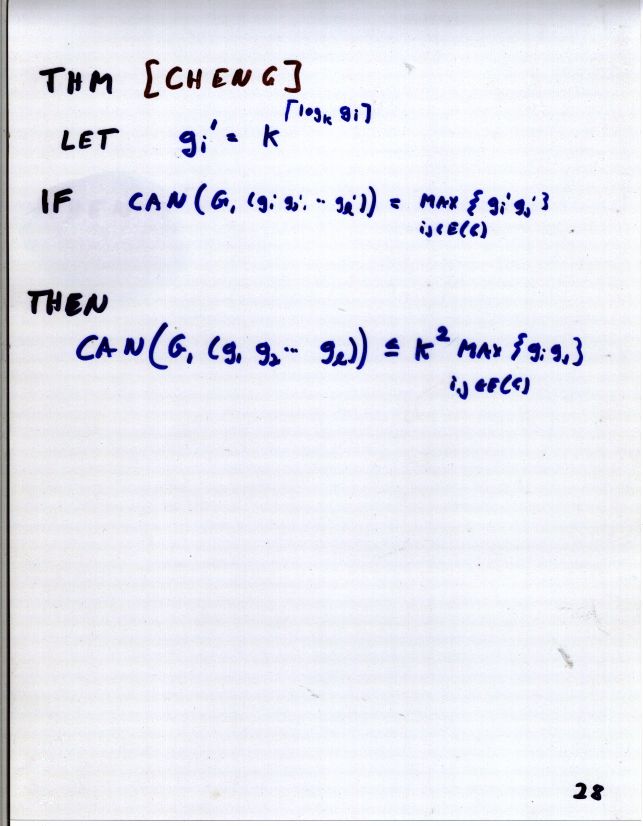 THM [CHENG]
LET gᵢ' = K^⌈log_K gᵢ⌉
IF CAN(G, (g₁' g₂' ·· g_ℓ')) = MAX { gᵢ' gⱼ' }
i,j ∈ E(G)
THEN
CAN(G, (g₁ g₂ ·· g_ℓ)) ≤ K² MAX { gᵢ gⱼ }
i,j ∈ E(G)
28